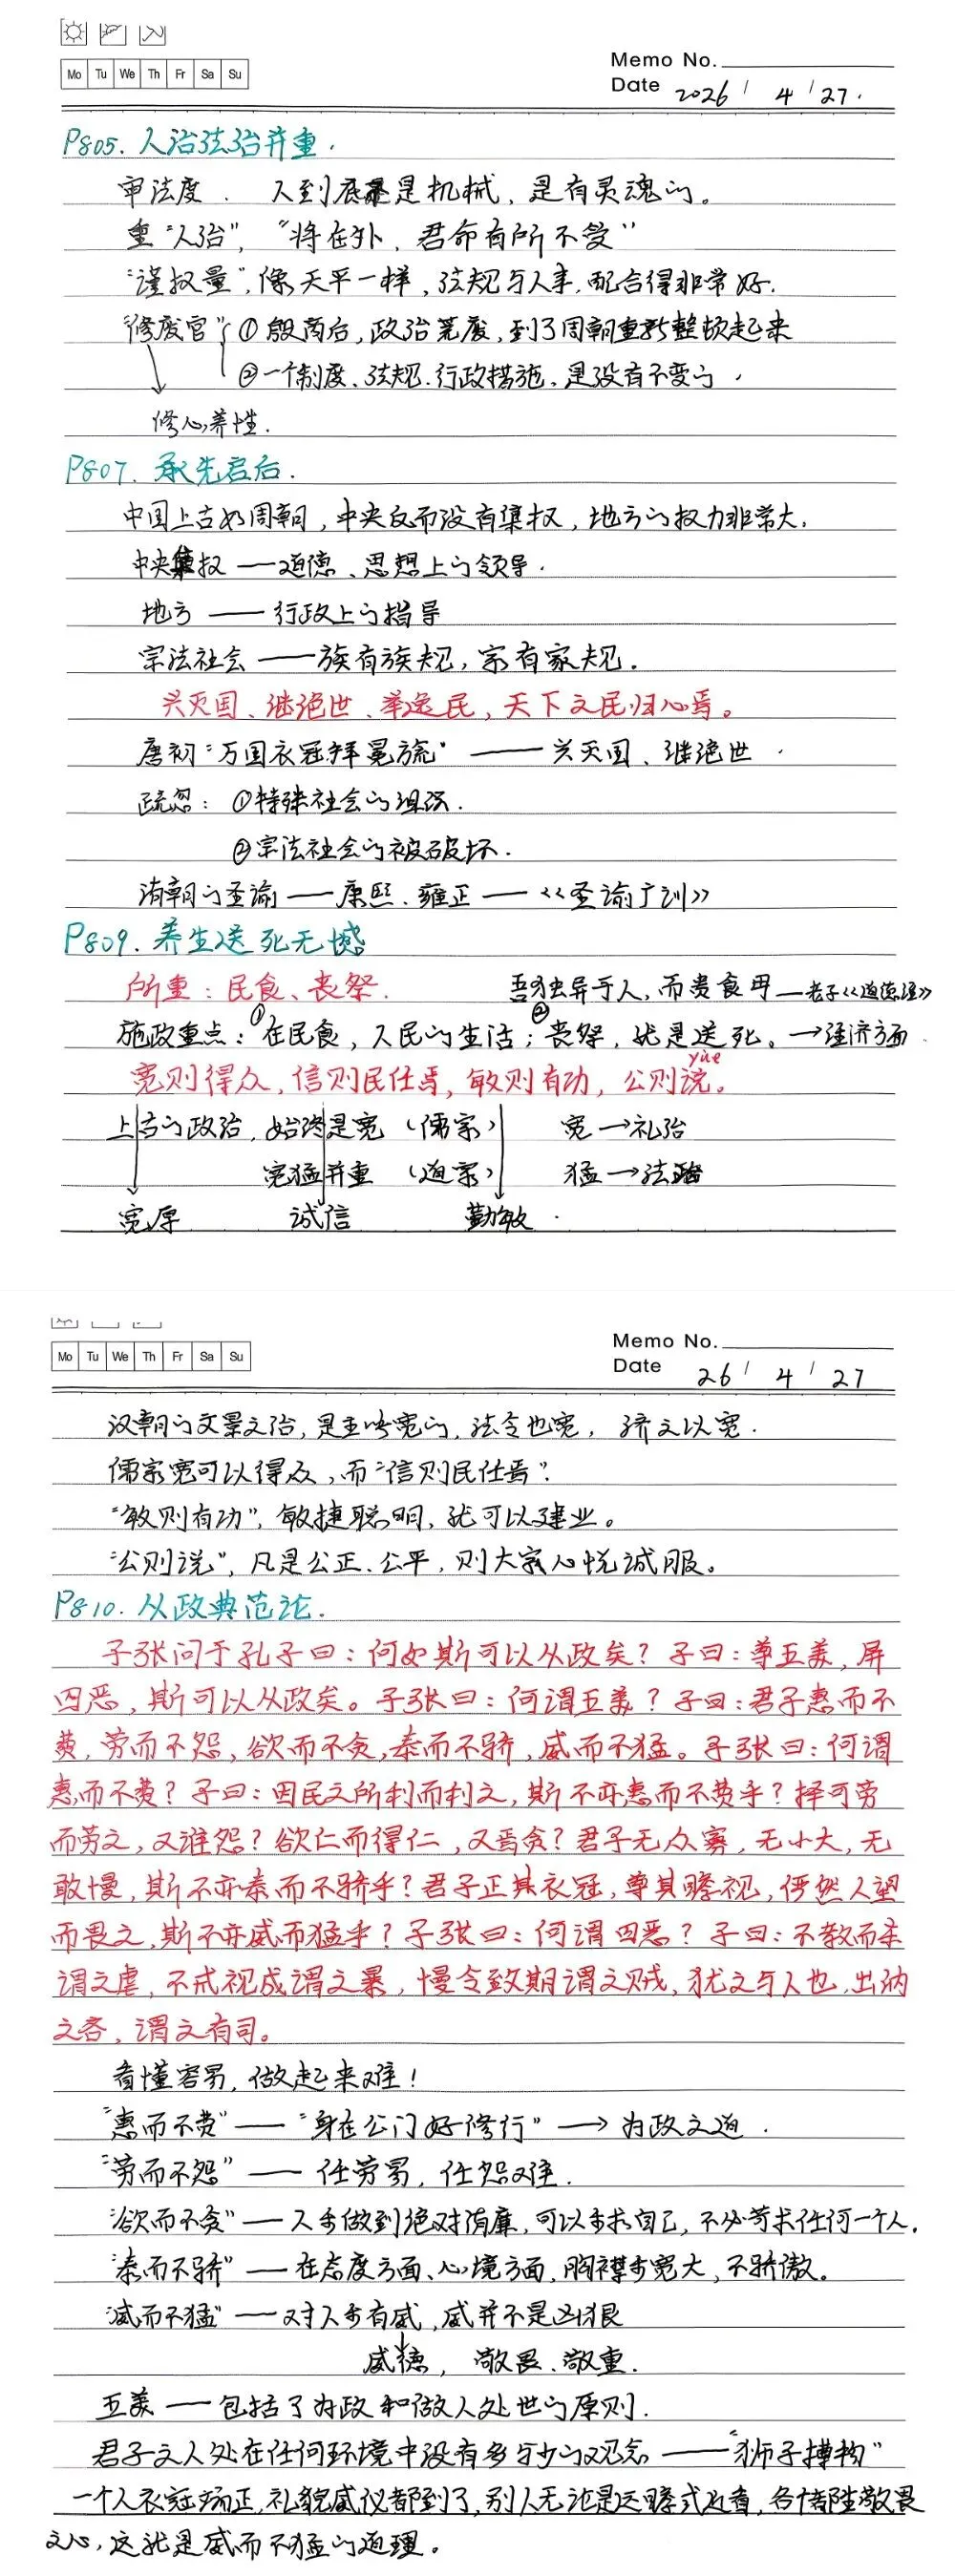 Mo Tu We Th Fr Sa Su
Memo No.
Date 2026 / 4 / 27.
P805. 人治法治并重.
审法度. 人到底是机械, 是有灵魂的。
重“人治”, “将在外, 君命有所不受”
“谨权量”, 像天平一样, 法规与人事, 配合得非常好.
“修废官” ① 殷商后, 政治荒废, 到了周朝重新整顿起来
② 一个制度、法规、行政措施, 是没有不变的.
修心养性.
P807. 承先启后.
中国上古如周朝, 中央反而没有集权, 地方的权力非常大.
中央集权 —— 道德、思想上的领导.
地方 —— 行政上的指导
宗法社会 —— 族有族规, 家有家规.
兴灭国、继绝世、举逸民, 天下之民归心焉。
唐初“万国衣冠拜冕旒” —— 兴灭国、继绝世.
疏忽: ①特殊社会的组织.
②宗法社会的被破坏.
清朝的圣谕 —— 康熙、雍正 —— 《圣谕广训》
P809. 养生送死无憾
所重: 民食、丧祭. 吾独异于人, 而贵食母 — 老子《道德经》
施政重点: ①在民食, 人民的生活; ②丧祭, 就是送死。→经济方面.
yue
宽则得众, 信则民任焉, 敏则有功, 公则说。
上古的政治, 始终是宽 (儒家) 宽→礼治
宽猛并重 (道家) 猛→法治
宽厚 诚信 勤敏.
Mo Tu We Th Fr Sa Su
Memo No.
Date 26 / 4 / 27
汉朝的文景之治, 是主张宽的, 法令也宽, 济之以宽.
儒家宽可以得众, 而“信则民任焉”.
“敏则有功”, 敏捷聪明, 就可以建业。
“公则说”, 凡是公正、公平, 则大家心悦诚服。
P810. 从政典范论.
子张问于孔子曰: 何如斯可以从政矣? 子曰: 尊五美, 屏
四恶, 斯可以从政矣。子张曰: 何谓五美? 子曰: 君子惠而不
费, 劳而不怨, 欲而不贪, 泰而不骄, 威而不猛。子张曰: 何谓
惠而不费? 子曰: 因民之所利而利之, 斯不亦惠而不费乎? 择可劳
而劳之, 又谁怨? 欲仁而得仁, 又焉贪? 君子无众寡, 无小大, 无
敢慢, 斯不亦泰而不骄乎? 君子正其衣冠, 尊其瞻视, 俨然人望
而畏之, 斯不亦威而猛乎? 子张曰: 何谓四恶? 子曰: 不教而杀
谓之虐, 不戒视成谓之暴, 慢令致期谓之贼, 犹之与人也, 出纳
之吝, 谓之有司。
看懂容易, 做起来难!
“惠而不费” —— “身在公门好修行” → 为政之道.
“劳而不怨” —— 任劳易, 任怨难.
“欲而不贪” —— 人要做到绝对清廉, 可以要求自己, 不必苛求任何一个人.
“泰而不骄” —— 在态度方面、心境方面, 胸襟要宽大, 不骄傲。
“威而不猛” —— 对人要有威, 威并不是凶狠
威德, 敬畏、敬重.
五美 —— 包括了为政和做人处世的原则.
君子之人处在任何环境中没有多与少的观念 —— “狮子搏物”
一个人衣冠端正, 礼貌威仪都到了, 别人无论是远瞻或近看, 各个都生敬畏
之心, 这就是威而不猛的道理。